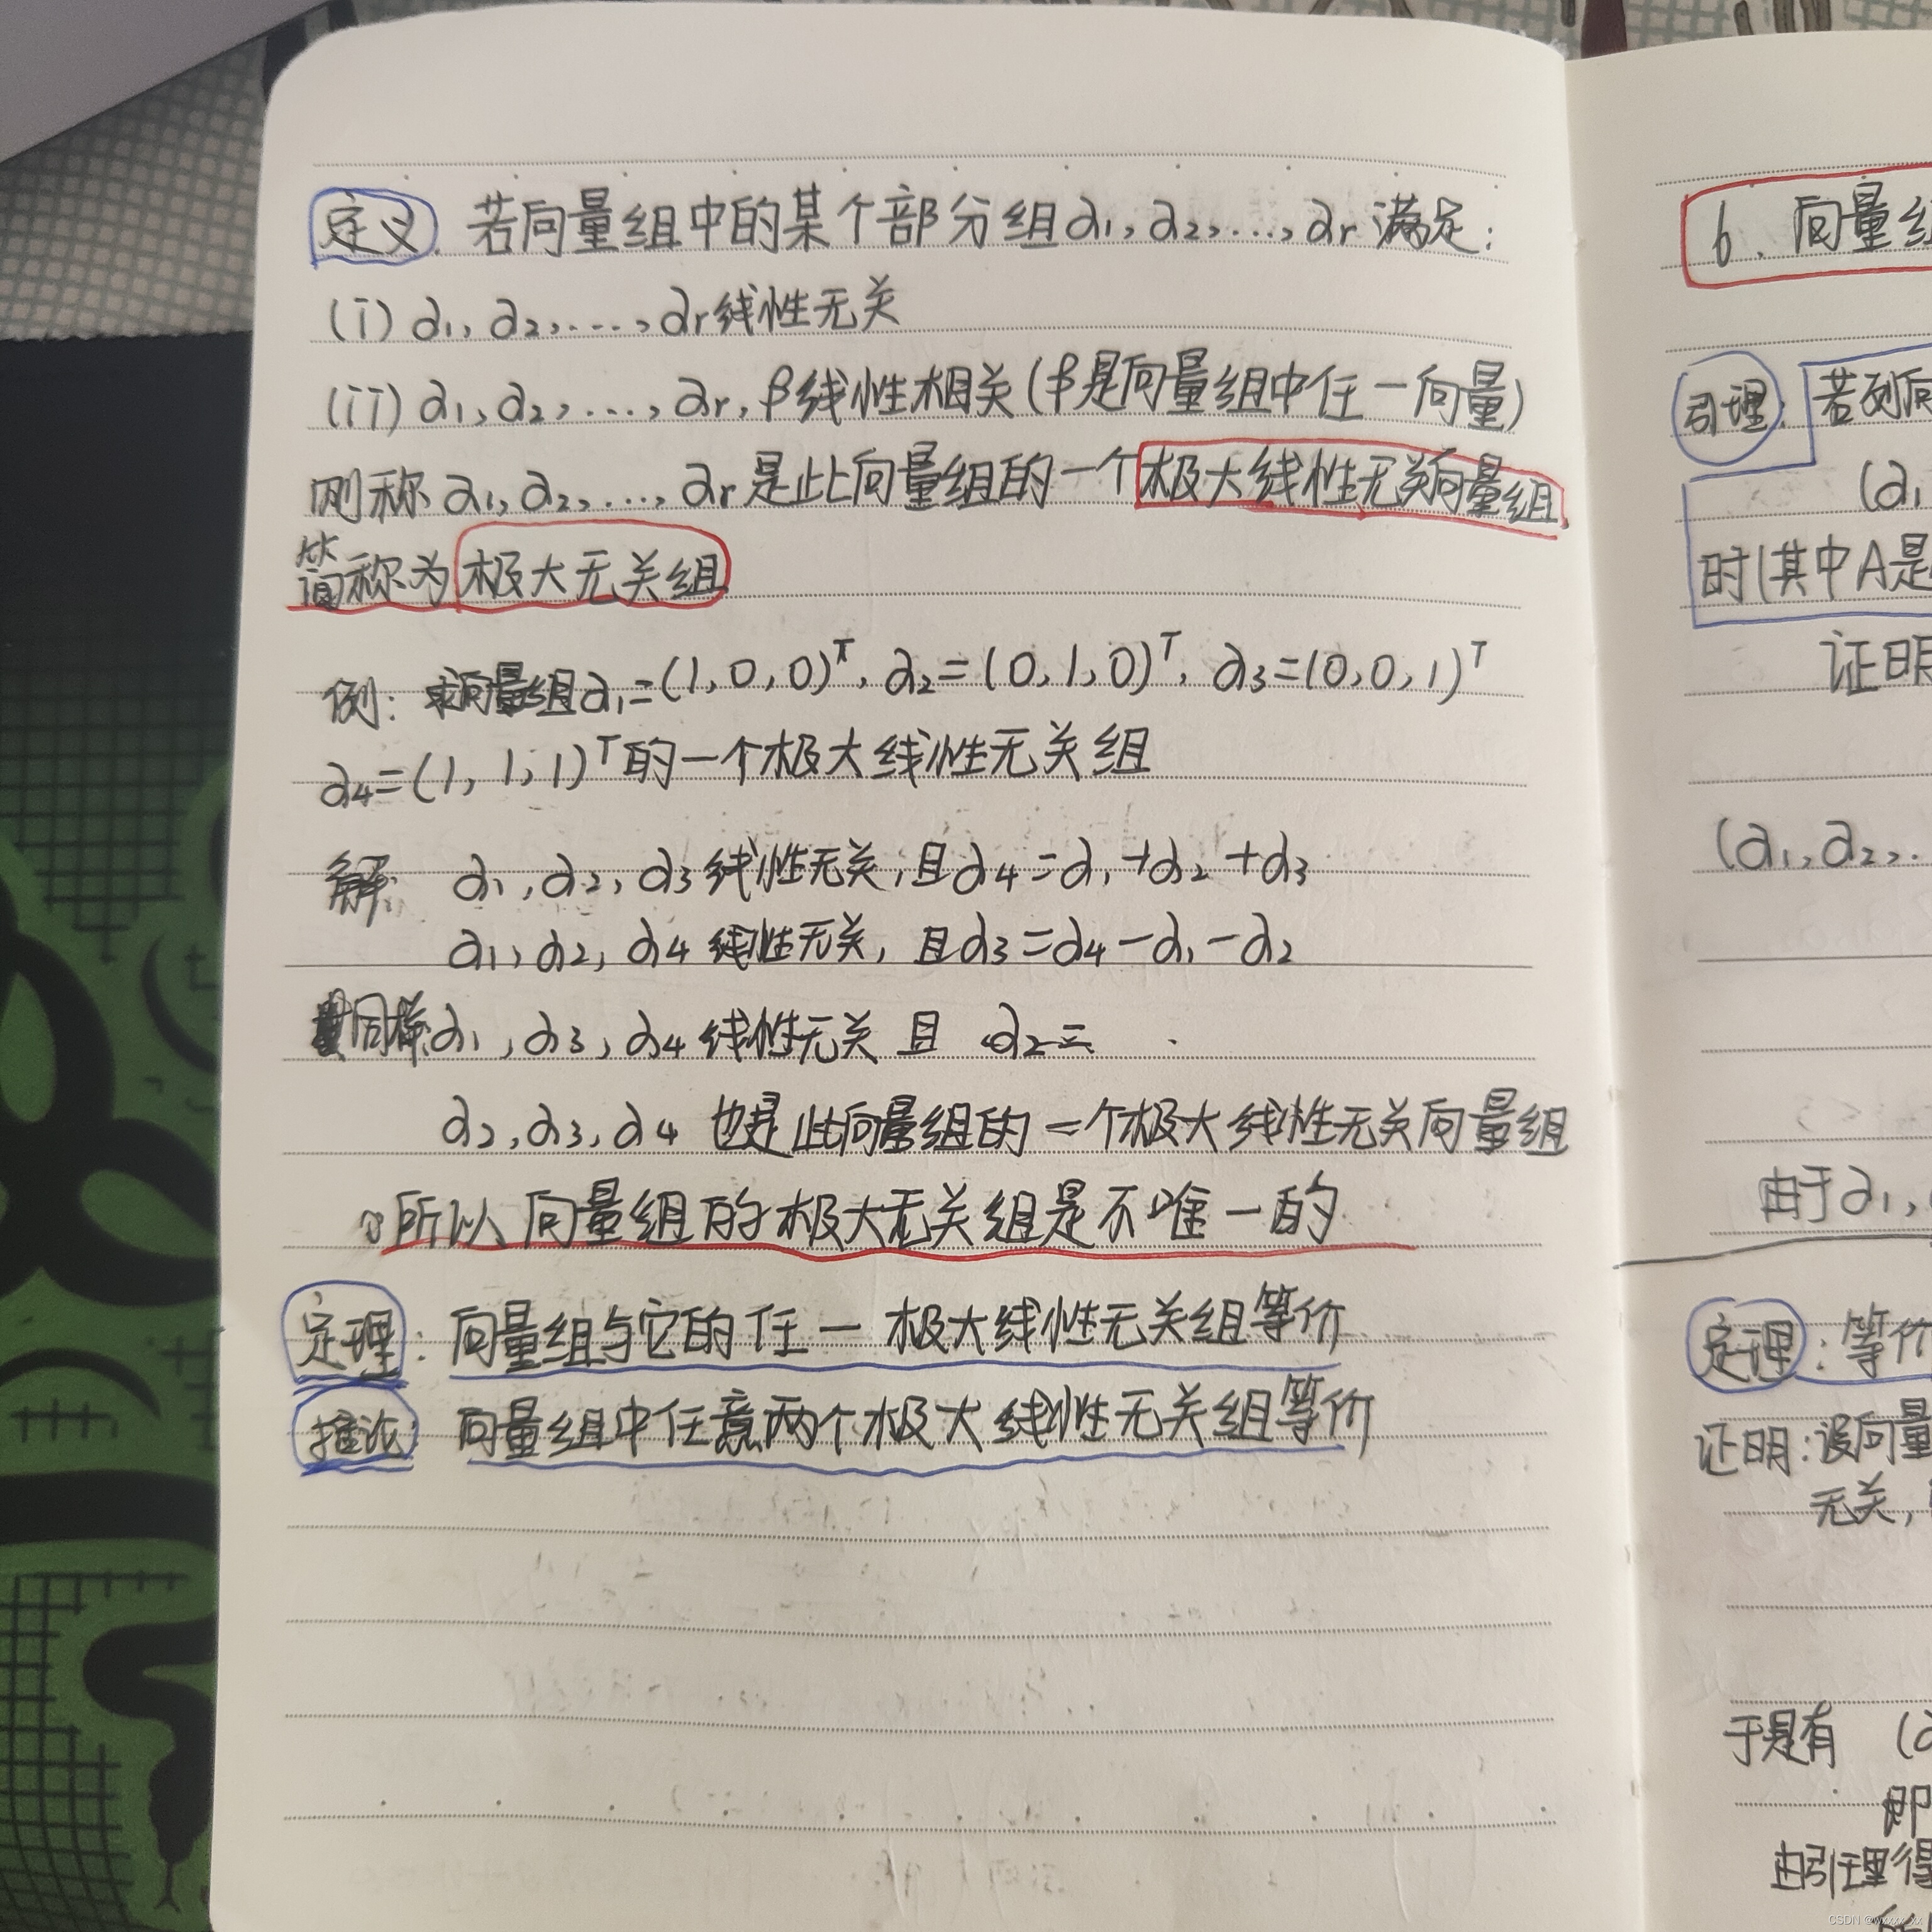 定义. 若向量组中的某个部分组α₁, α₂, …, αr 满足:
(i) α₁, α₂, …, αr 线性无关
(ii) α₁, α₂, …, αr, β线性相关(β是向量组中任一向量)
则称 α₁, α₂, …, αr 是此向量组的一个极大线性无关向量组
简称为 极大无关组
例: 求向量组α₁=(1,0,0)ᵀ, α₂=(0,1,0)ᵀ, α₃=(0,0,1)ᵀ
α₄=(1,1,1)ᵀ的一个极大线性无关组
解: α₁, α₂, α₃ 线性无关, 且α₄=α₁+α₂+α₃
α₁, α₂, α₄ 线性无关, 且α₃=α₄-α₁-α₂
同样: α₁, α₃, α₄ 线性无关 且 α₂=
α₂, α₃, α₄ 也是此向量组的一个极大线性无关向量组
所以向量组的极大无关组是不唯一的
定理: 向量组与它的任一极大线性无关组等价
推论: 向量组中任意两个极大线性无关组等价
6. 向量组
引理: 若列向
(α₁
时(其中A是
证明
(α₁, α₂, .
由于α₁,
定理: 等价
证明: 设向量
无关,
于是有 (
即
由引理得
CSDN